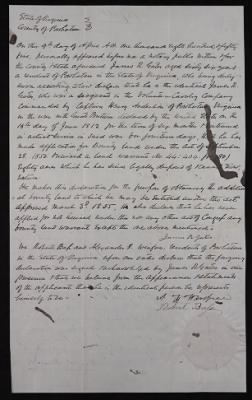 State of Virginia
County of Powhatan
On this 9th day of April A.D. one thousand eight hundred and fifty
five, personally appeared before me a notary public within & for
the County & State aforesaid James R. Gates aged sixty six years
a resident of Powhatan in the State of Virginia, who being duly
sworn according to law declares that he is the identical James R.
Gates, who was a Sergeant in the Volunteer Cavalry Company
commanded by Captain Henry Anderson of Powhatan Virginia
in the war with Great Britain declared by the United States on the
18th day of June 1812 for the term of six months & continued
in actual service in said war for fourteen days that he has
made application for Bounty land under the act of September
28, 1850 & received a land warrant No.
Eighty acres which he has since legally disposed of &
He makes this declaration for the purpose of obtaining the additional
bounty land to which he may be entitled under the act
approved March 3d 1855. He also declares that he has never
applied for nor received under this nor any other act of Congress any
bounty land warrant except the one above mentioned.
James R. Gates
We Robert Bass and Alexander residents of Powhatan
in the State of Virginia upon our oaths declare that the foregoing
declaration was signed & acknowledged by James R. Gates in our
presence & that we believe from the appearance & statements
of the applicant that he is the identical person he represents
himself to be.
Robert Bass